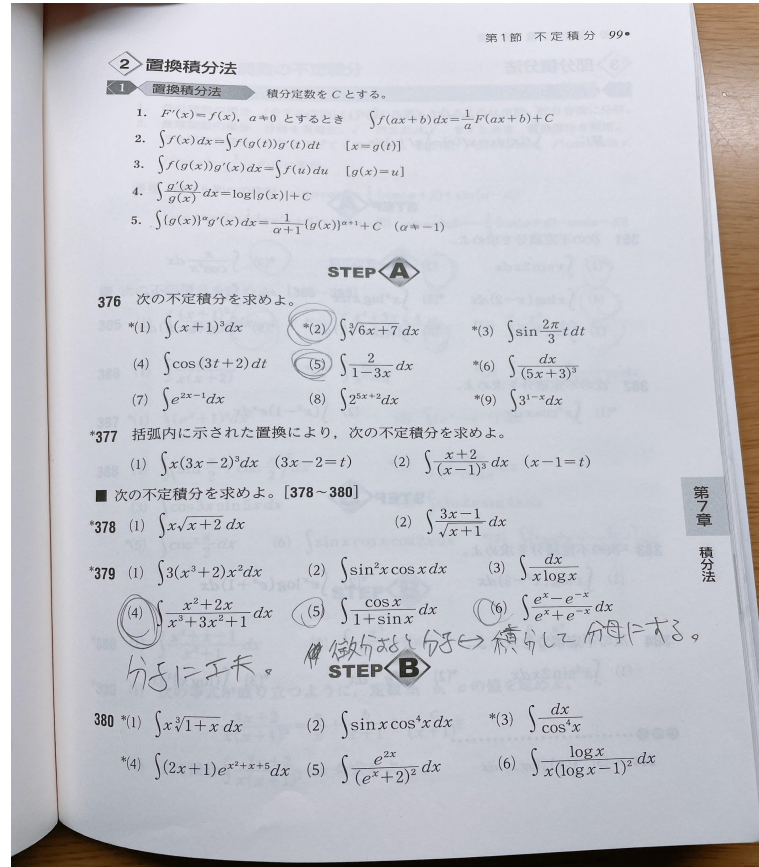 第1節 不定積分 99•
2 置換積分法
1 置換積分法 積分定数を C とする。
1. F′(x)=f(x), a≠0 とするとき ∫f(ax+b)dx=1/a F(ax+b)+C
2. ∫f(x)dx=∫f(g(t))g′(t)dt [x=g(t)]
3. ∫f(g(x))g′(x)dx=∫f(u)du [g(x)=u]
4. ∫g′(x)/g(x) dx=log|g(x)|+C
5. ∫{g(x)}^α g′(x)dx=1/(α+1){g(x)}^(α+1)+C (α≠−1)
STEP A
376 次の不定積分を求めよ。
*(1) ∫(x+1)³dx *(2) ∫∛(6x+7) dx *(3) ∫sin 2π/3 t dt
(4) ∫cos(3t+2)dt (5) ∫2/(1−3x) dx *(6) ∫dx/(5x+3)³
(7) ∫e^(2x−1)dx (8) ∫2^(5x+2)dx *(9) ∫3^(1−x)dx
*377 括弧内に示された置換により，次の不定積分を求めよ。
(1) ∫x(3x−2)³dx (3x−2=t) (2) ∫(x+2)/(x−1)³ dx (x−1=t)
■ 次の不定積分を求めよ。[378～380]
*378 (1) ∫x√(x+2) dx (2) ∫(3x−1)/√(x+1) dx
*379 (1) ∫3(x³+2)x²dx (2) ∫sin²x cos x dx (3) ∫dx/(x log x)
(4) ∫(x²+2x)/(x³+3x²+1) dx (5) ∫cos x/(1+sin x) dx (6) ∫(e^x−e^(−x))/(e^x+e^(−x)) dx
微分すると分子↔積分して分母にする。
分子に工夫。
STEP B
380 *(1) ∫x∛(1+x) dx (2) ∫sin x cos⁴x dx *(3) ∫dx/cos⁴x
*(4) ∫(2x+1)e^(x²+x+5)dx (5) ∫e^(2x)/(e^x+2)² dx (6) ∫log x/(x(log x−1)²) dx
第7章
積分法